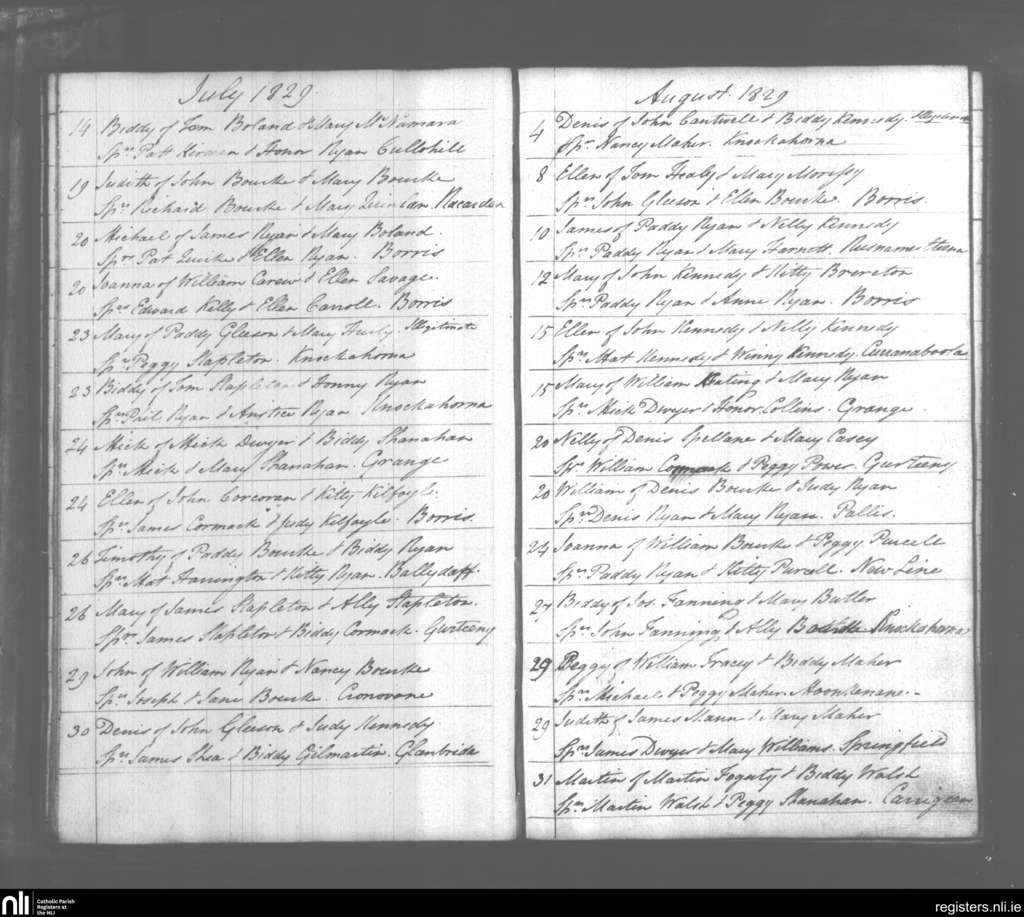 July 1829
14 Biddy of Tom Boland & Mary McNamara
Sprs Patt Kirwen & Honor Ryan Cullohill
19 Judith of John Bourke & Mary Bourke
Sprs Richard Bourke & Mary Quinlan. Racardun
20 Michael of James Ryan & Mary Boland.
Sprs Pat Quirke & Ellen Ryan. Borris
20 Joanna of William Carew & Ellen Savage.
Sprs Edward Kelly & Ellen Carroll. Borris
23 Mary of Paddy Gleeson & Mary Illegitimate
Spr Peggy Stapleton. Knockahorna
23 Biddy of Tom Stapleton & Honny Ryan
Sprs Phil Ryan & Anstice Ryan Knockahorna
24 Mick of Mick Dwyer & Biddy Shanahan
Sprs Mick & Mary Shanahan. Grange
24 Ellen of John Corcoran & Kitty Kilfoyle.
Sprs James Cormack & Judy Kilfoyle. Borris.
26 Timothy of Paddy Bourke & Biddy Ryan
Sprs Mat Harrington & Kitty Ryan. Ballyduff.
26 Mary of James Stapleton & Ally Stapleton.
Sprs James Stapleton & Biddy Cormack. Gurteeny
29 John of William Ryan & Nancy Bourke
Sprs Joseph & Jane Bourke. Cronovone
30 Denis of John Gleeson & Judy Kennedy
Sprs James Shea & Biddy Gilmartin Glanbride
August. 1829
4 Denis of John Cantwell & Biddy Kennedy. Illegitimate
Spr Nancy Maher. Knockahorna
8 Ellen of Tom Healy & Mary Morissy
Sprs John Gleeson & Ellen Bourke. Borris.
10 James of Paddy Ryan & Nelly Kennedy
Sprs Paddy Ryan & Mary Harnott.
12 Mary of John Kennedy & Kitty Brereton
Sprs Paddy Ryan & Anne Ryan. Borris
15 Ellen of John Kennedy & Nelly Kennedy
Sprs Mat Kennedy & Winny Kennedy. Curranaboola
15 Mary of William Keating & Mary Ryan
Sprs Mick Dwyer & Honor Collins. Grange.
20 Nelly of Denis Spellane & Mary Casey
Sprs William Cormack & Peggy Power. Gurteeny
20 William of Denis Bourke & Judy Ryan
Sprs Denis Ryan & Mary Ryan. Pallis.
24 Joanna of William Bourke & Peggy Purcell
Sprs Paddy Ryan & Kitty Purcell. New Line
27 Biddy of Jos. Fanning & Mary Butler
Sprs John Fanning & Ally Knockahorna
29 Peggy of William Tracey & Biddy Maher
Sprs Michael & Peggy Maher. Moonkenane.
29 Judith of James Mara & Mary Maher
Sprs James Dwyer & Mary Williams. Springfield
31 Martin of Martin Fogerty & Biddy Walsh
Sprs Martin Walsh & Peggy Shanahan. Carrigeen
nli
Catholic Parish
Registers at
the NLI
registers.nli.ie